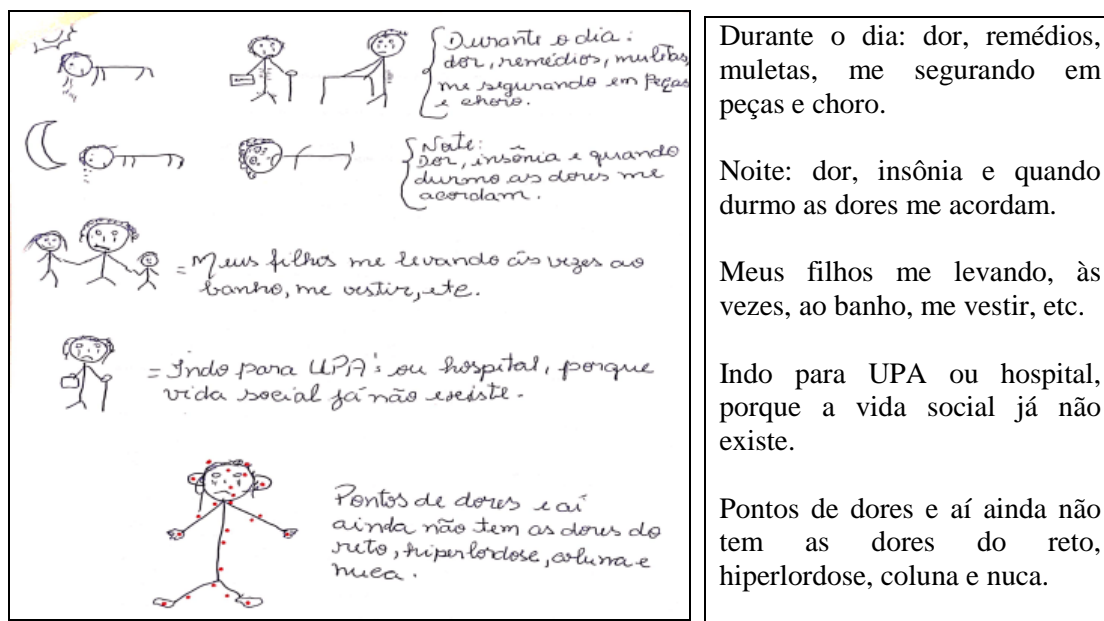 Durante o dia:
dor, remédios, muletas,
me segurando em peças
e choro.
Noite:
Dor, insônia e quando
durmo as dores me
acordam.
= Meus filhos me levando às vezes ao
banho, me vestir, etc.
= Indo para UPA's ou hospital, porque
vida social já não existe.
Pontos de dores e aí
ainda não tem as dores do
reto, hiperlordose, coluna e
nuca.
Durante o dia: dor, remédios,
muletas, me segurando em
peças e choro.
Noite: dor, insônia e quando
durmo as dores me acordam.
Meus filhos me levando, às
vezes, ao banho, me vestir, etc.
Indo para UPA ou hospital,
porque a vida social já não
existe.
Pontos de dores e aí ainda não
tem as dores do reto,
hiperlordose, coluna e nuca.